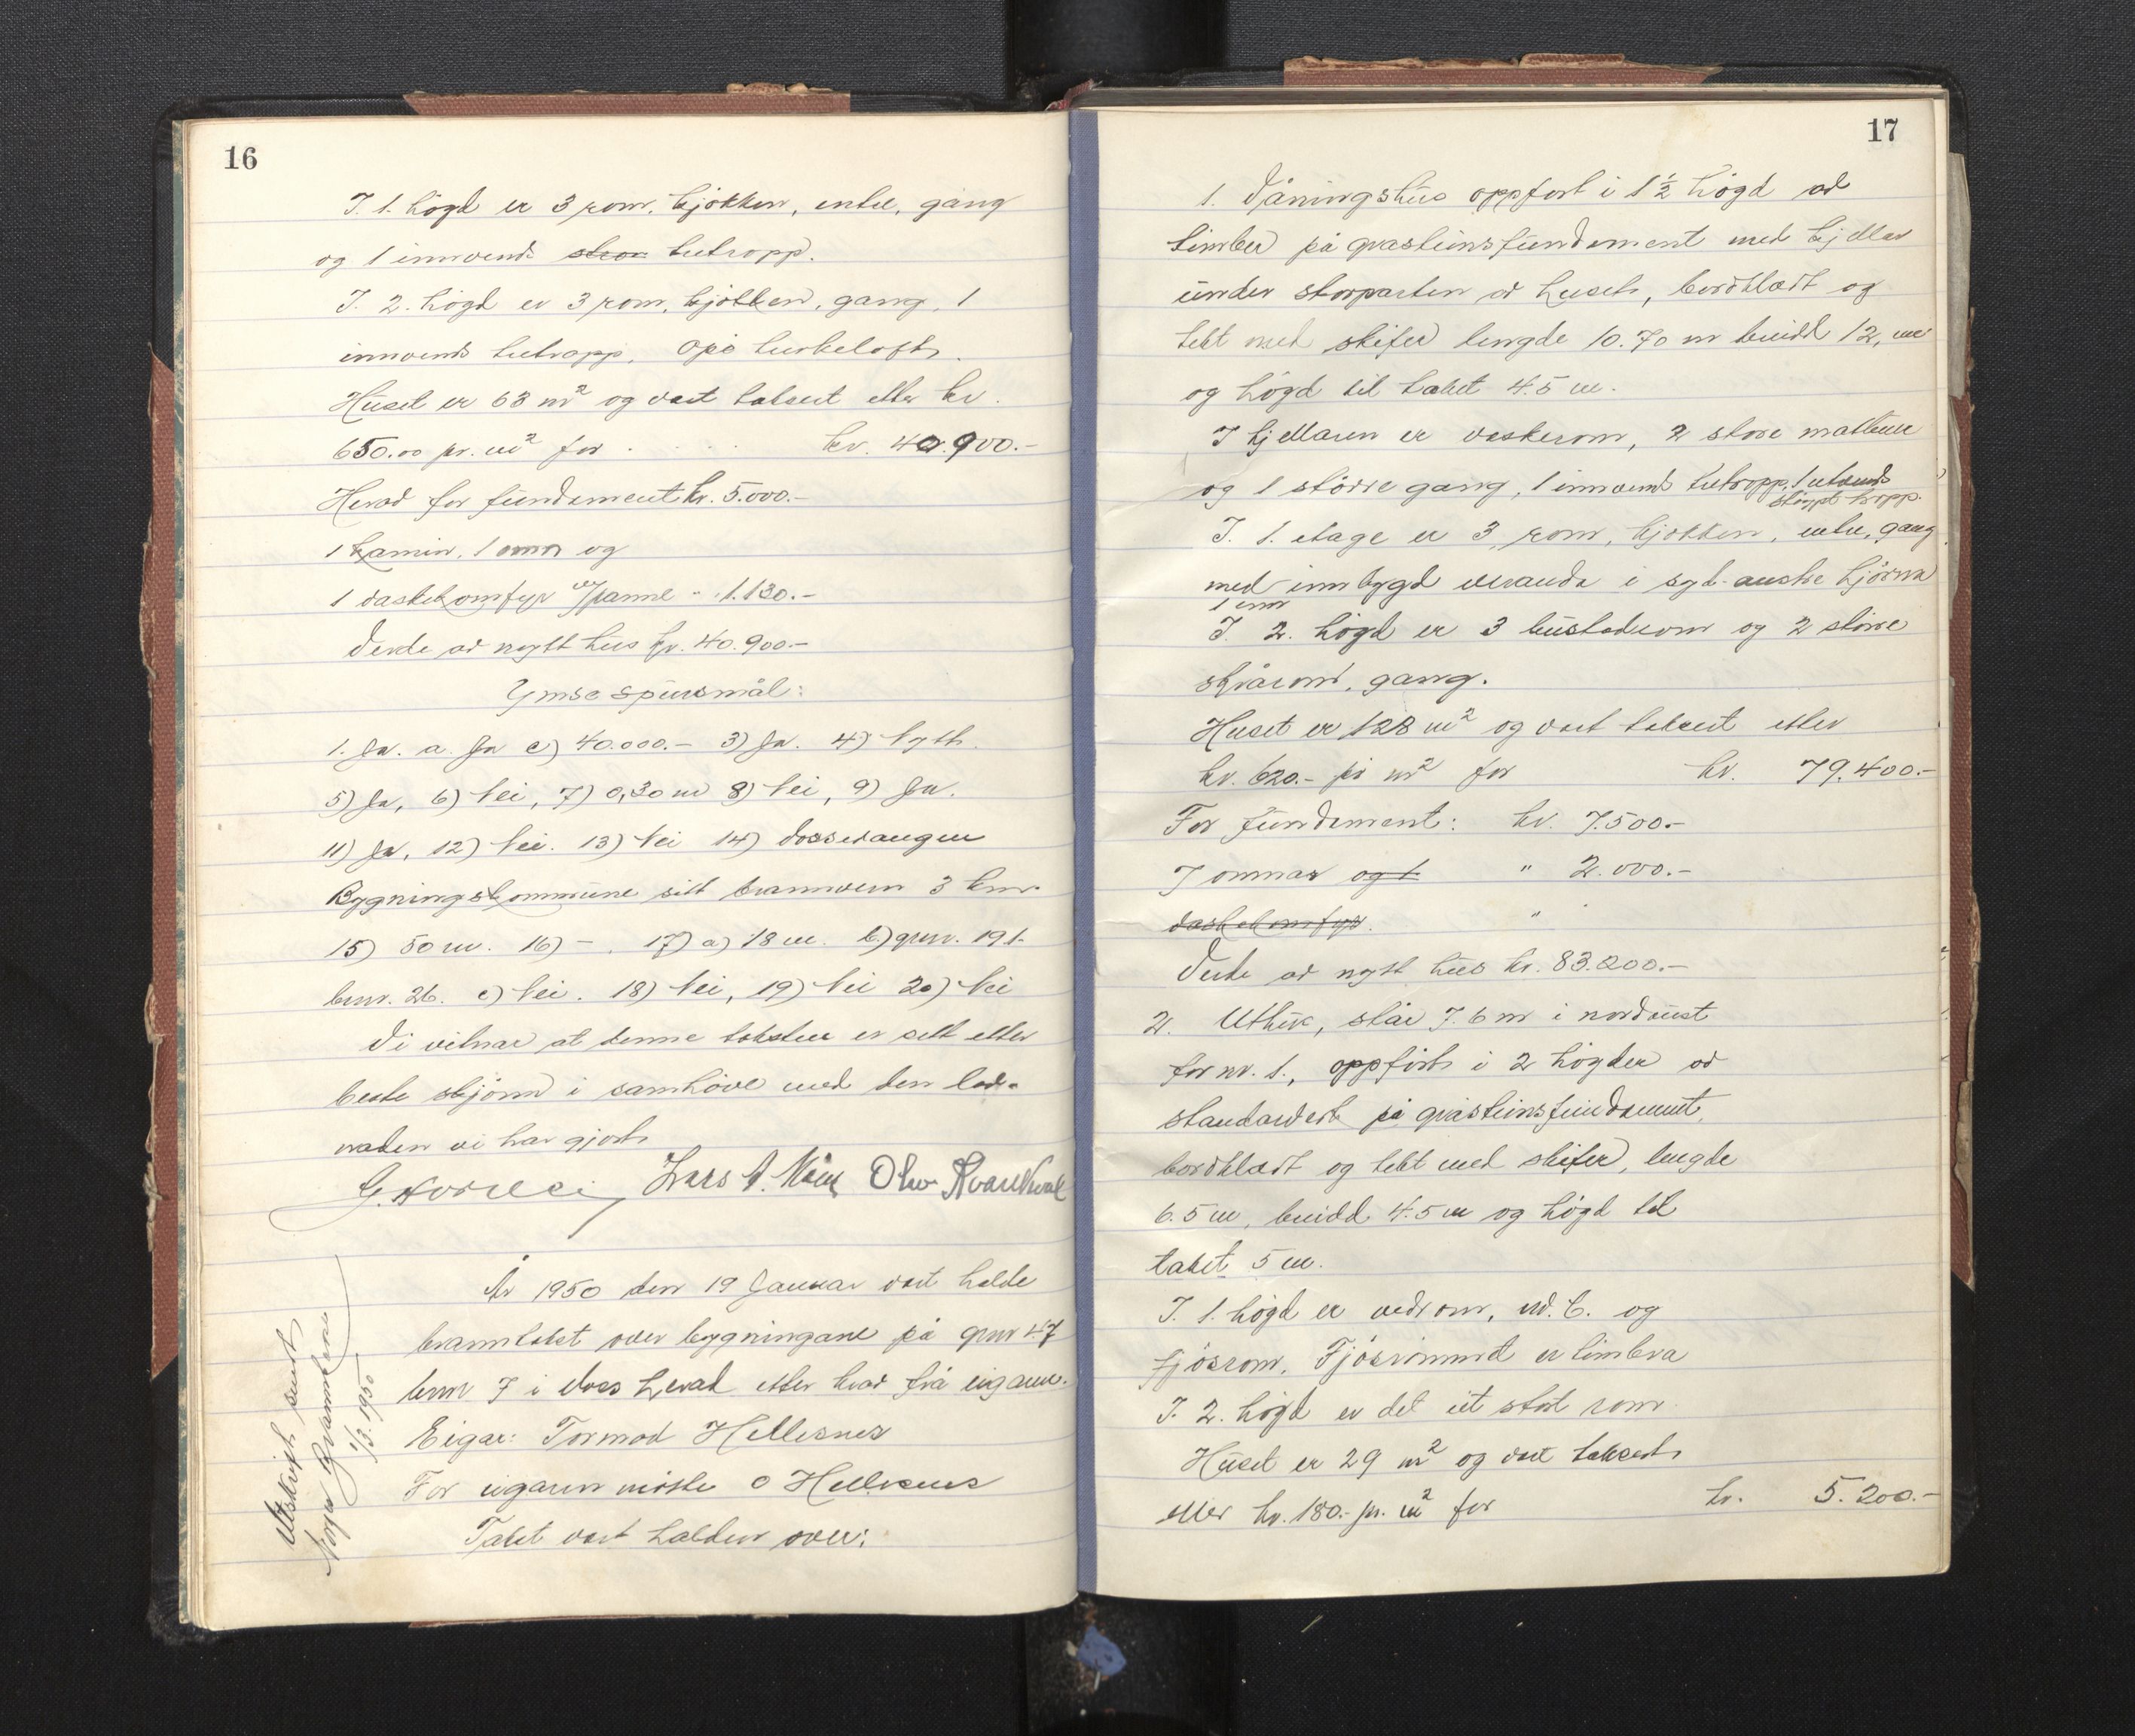 16
I. 1. högd er 3 rom, kjökken, entre, gang
og 1 innvend. tretropp.
I. 2. högd er 3 rom, kjökken, gang, 1
innvend tretrapp, Opö turkeloft.
Huset er 63 m² og vart taksert etter kr.
650.00 pr. m² for . . . . kr. 40.900.-
Herad for fundament kr. 5.000.-
1 kamin, 1 omn og
1 vaskekomfyr m/panne " 1.130.-
Verde av nytt hus kr. 40.900.-
Ymse spursmål:
1. Ja. a. Ja c) 40.000.- 3) Ja. 4) Nytt.
5) Ja, 6) Nei, 7) 0,30 m 8) Nei, 9) Ja.
11) Ja, 12) Nei. 13) Nei 14) Vossevangen
Bygningskommune sitt brannvern 3 km.
15) 50 m. 16) – . 17) a) 18 m. b) gnr. 191.
bnr. 26. c) Nei. 18) Nei, 19) Nei 20) Nei
Vi vitnar at denne taksten er sett etter
beste skjönn i samhöve med den lov-
naden vi har gjort.
Lars
År 1950 den 19 Januar vart halde
branntakst over bygningane på gnr 47
bnr 7 i Voss herad etter krav frå eigaren.
Eigar: Tormod Hellesnes
For eigaren mötte O Hellesnes
Takst vart halden over:
Utskrift sendt
Noregs Brannkasse
1/3. 1950
17
1. Våningshus oppfört i 1½ högd av
timber på gråsteinsfundament med kjellar
under storparten av huset, bordklædt og
tekt med skifer lengde 10.70 m breidd 12, m
og högd til taket 4.5 m.
I kjellaren er vaskerom, 2 store matbuer
og 1 större gang, 1 innvend tretropp, 1 utvend
stöypt tropp.
I. 1. etage er 3 rom, kjökken, entre, gang
med innbygd veranda i syd-austre hjörna
I. 2. högd er 3 bustadrom og 2 större
skrårom, gang.
Huset er 128 m² og vart taksert etter
kr. 620.- på m² for kr. 79.400.-
For fundament: kr. 7.500.-
7 omnar og 1 " 2.000.-
vaskekomfyr. "
Verde av nytt hus kr. 83.200.-
2. Uthus, står 7.6 m i nordaust
for nr. 1., oppfört i 2 högder av
standarverk på gråsteinsfundament,
bordklædt og tekt med skifer, lengde
6.5 m, breidd 4.5 m og högd til
taket 5 m.
I. 1. högd er vedrom, og
fjösrom. Fjösrommet er timbra
I. 2. högd er det eit stort rom.
Huset er 29 m² og vart taksert
etter kr. 180.- pr. m² for kr. 5.200.-